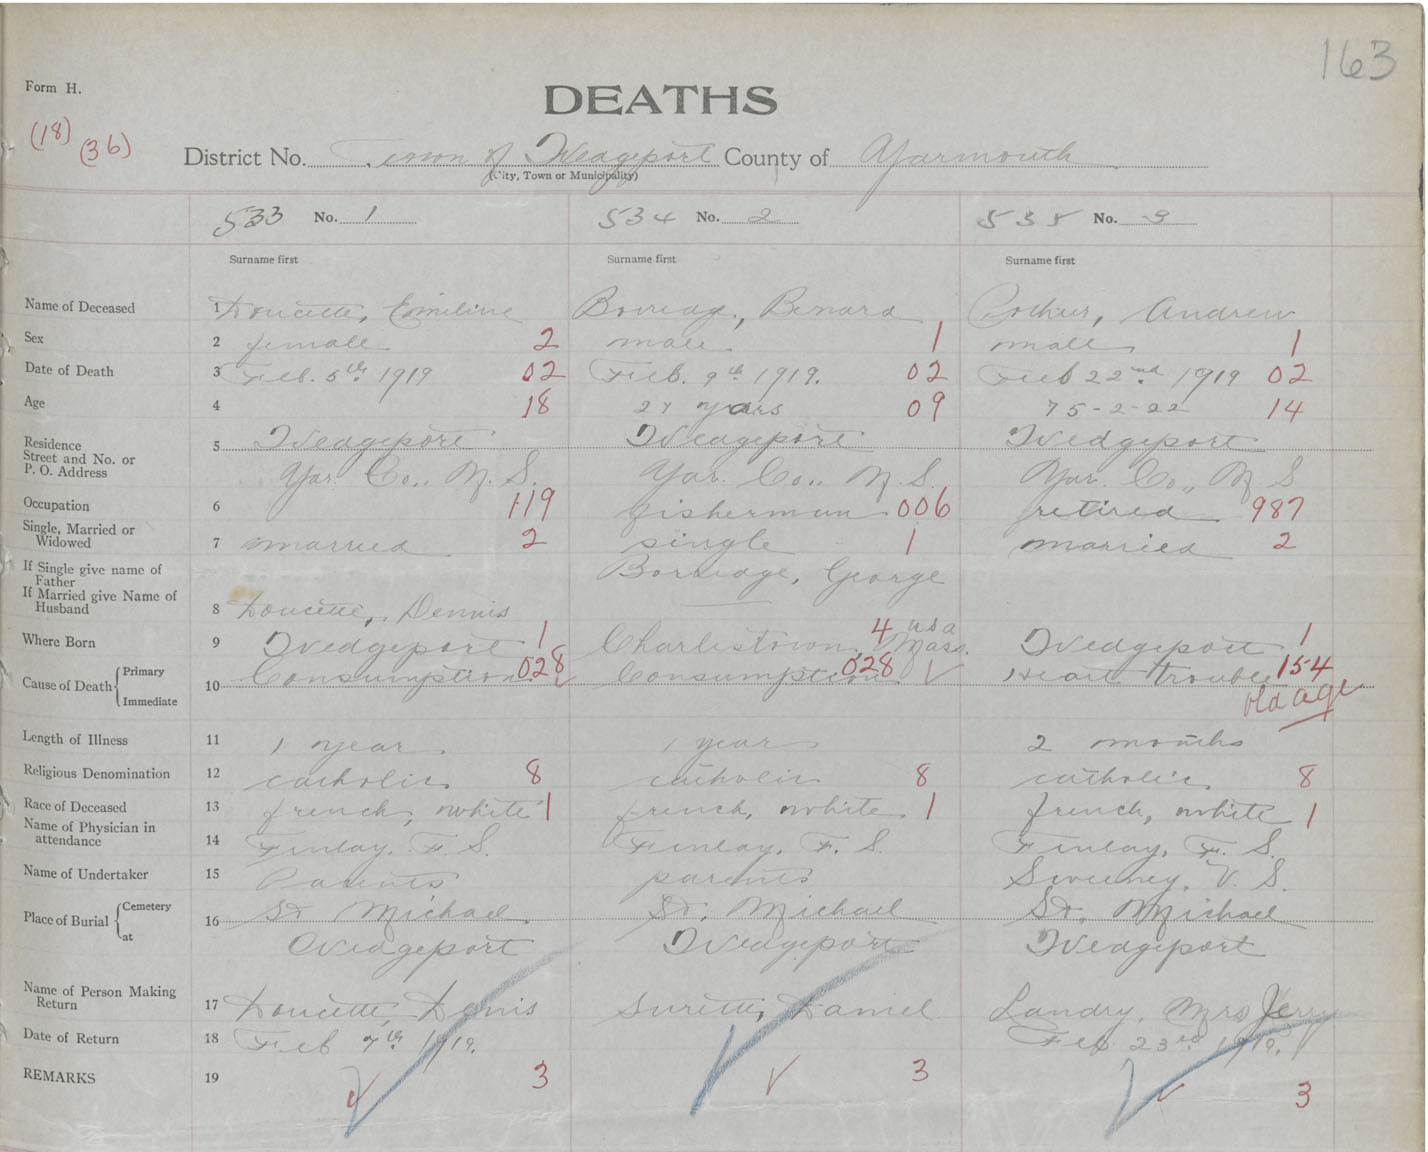 163
Form H.
DEATHS
(18) (36)
District No. Town of Wedgeport County of Yarmouth
(City, Town or Municipality)
533 No. 1 534 No. 2 535 No. 3
Surname first Surname first Surname first
Name of Deceased 1 Doucette, Emiline Benard Andrew
Sex 2 female 2 male 1 male 1
Date of Death 3 Feb. 5th 1919 02 Feb. 9th 1919. 02 Feb 22nd 1919 02
Age 4 18 27 years 09 75-2-22 14
Residence 5 Wedgeport Wedgeport Wedgeport
Street and No. or
P. O. Address Yar. Co., N. S. Yar. Co., N. S. Yar. Co., N. S
Occupation 6 119 fisherman 006 retired 987
Single, Married or
Widowed 7 married 2 single 1 married 2
If Single give name of
Father Borreage, George
If Married give Name of
Husband 8 Doucette, Dennis
Where Born 9 Wedgeport 1 Charlestown, Mass. 4 usa Wedgeport 1
Cause of Death { Primary Immediate 10 Consumption 028 Consumption 028 Heart trouble 154
old age
Length of Illness 11 1 year 1 year 2 months
Religious Denomination 12 catholic 8 catholic 8 catholic 8
Race of Deceased 13 french, white 1 french, white 1 french, white 1
Name of Physician in
attendance 14 Finlay, F. S. Finlay, F. S. Finlay, F. S.
Name of Undertaker 15 Parents parents Sweeney, V. S.
Place of Burial { Cemetery at 16 St Michael St. Michael St. Michael
Wedgeport Wedgeport Wedgeport
Name of Person Making
Return 17 Doucette, Denis Surette, Daniel Landry, Mrs Jerry
Date of Return 18 Feb 7th 1919. Feb. 23rd 1919.
REMARKS 19 3 3 3